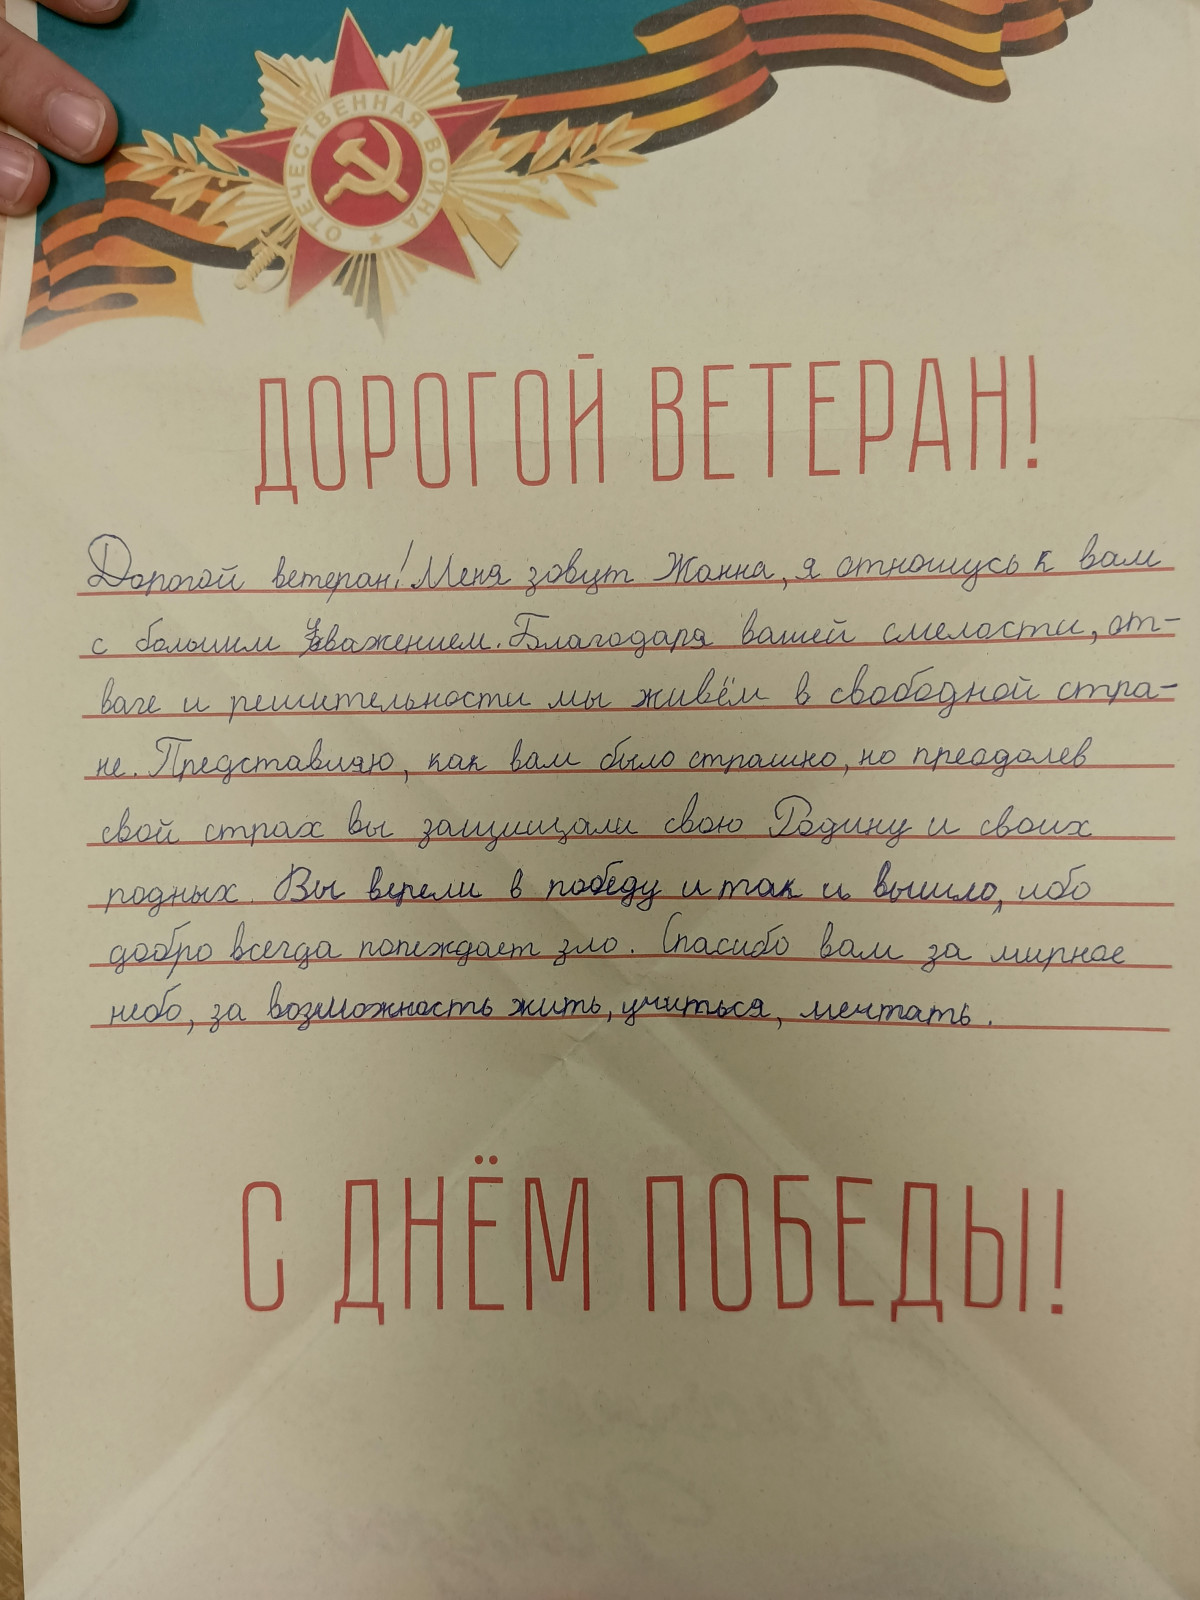 ОТЕЧЕСТВЕННАЯ ВОЙНА
ДОРОГОЙ ВЕТЕРАН!
Дорогой ветеран! Меня зовут Жанна, я отношусь к вам
с большим уважением. Благодаря вашей смелости, от-
ваге и решительности мы живём в свободной стра-
не. Представляю, как вам было страшно, но преодолев
свой страх вы защищали свою Родину и своих
родных. Вы верели в победу и так и вышло, ибо
добро всегда попеждает зло. Спасибо вам за мирное
небо, за возможность жить, учиться, мечтать.
С ДНЁМ ПОБЕДЫ!